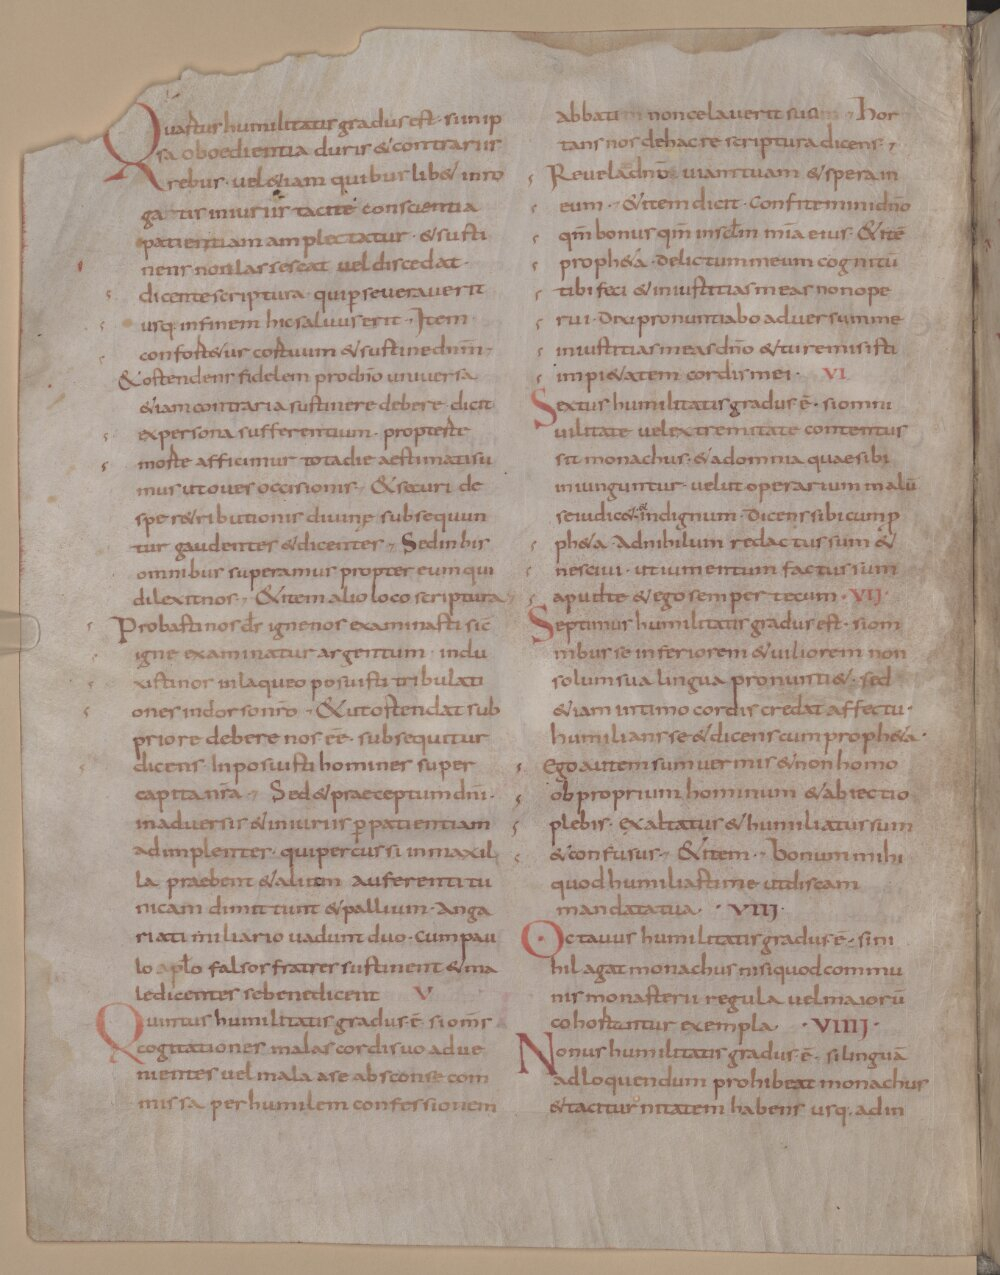 Quartus humilitatis gradus est · si in ip
sa oboedientia duris & contrariis
rebus · vel &iam quibuslib& inro
gatis iniuriis tacite conscientia
patientiam amplectatur · & susti
nens non lassescat vel discedat ·
dicente scriptura · qui perseveraverit
usq· in finem hic salvus erit · Item
confort&ur cor tuum & sustine dnm̄ ·
& ostendens fidelem pro dn̄o universa
&iam contraria sustinere debere · dicit
ex persona sufferentium · propter te
morte afficimur tota die aestimati su
mus ut oves occisionis · & securi de
spe r&ributionis divinę subsequun
tur gaudentes & dicentes · Sed in his
omnibus superamus propter eum qui
dilexit nos · & item alio loco scriptura
Probasti nos ds̄ igne nos examinasti sic̄
igne examinatur argentum · indu
xisti nos in laqueo posuisti tribulati
ones in dorso nr̄o · & ut ostendat sub
priore debere nos eē · subsequitur
dicens · Inposuisti homines super
capita nr̄a · Sed & praeceptum dnī ·
in adversis & iniuriis p̱ patientiam
adimplentes · qui percussi in maxil
la praebent & alteram auferenti tu
nicam dimittunt & pallium · Anga
riati miliario vadunt duo · Cum pau
lo aplo falsos fratres sustinent & ma
ledicentes se benedicent V
Quintus humilitatis gradus · ē · si oms̄
cogitationes malas cordi suo adve
nientes vel mala a se absconse com
missa per humilem confessionem
abbatem non celaverit suum · Hor
tans nos de hac re scriptura dicens ·
Revela dn̄o viam tuam & spera in
eum · & item dicit · Confitemini dn̄o
qm̄ bonus qm̄ in sclm̄ mīa eius · & itē
proph&a · Delictum meum cognitū
tibi feci & iniustitias meas non ope
rui · Dixi pronuntiabo adversum me
iniustitias meas dn̄o & tu remisisti
impi&atem cordis mei · VI
Sextus humilitatis gradus · ē · si omni
vilitate vel extremitate contentus
sit monachus · & ad omnia quae sibi
iniunguntur · velut operarium malū
se iudic& & indignum · Dicens sibi cum p
ph&a · Ad nihilum redactus sum &
nescivi · ut iumentum factus sum
apud te & ego semper tecum · VII ·
Septimus humilitatis gradus est · si om
nibus se inferiorem & viliorem non
solum sua lingua pronunti& · sed
&iam intimo cordis credat affectu ·
humilians se & dicens cum proph&a ·
Ego autem sum vermis & non homo
obproprium hominum & abiectio
plebis · exaltatus & humiliatus sum
& confusus · & item · Bonum mihi
quod humiliasti me ut discam
mandata tua · VIII ·
Octavus humilitatis gradus · ē · si ni
hil agat monachus nisi quod commu
nis monasterii regula vel maiorū
cohortantur exempla · VIIII ·
Nonus humilitatis gradus · ē · si linguā
ad loquendum prohibeat monachus
& taciturnitatem habens usq· ad in